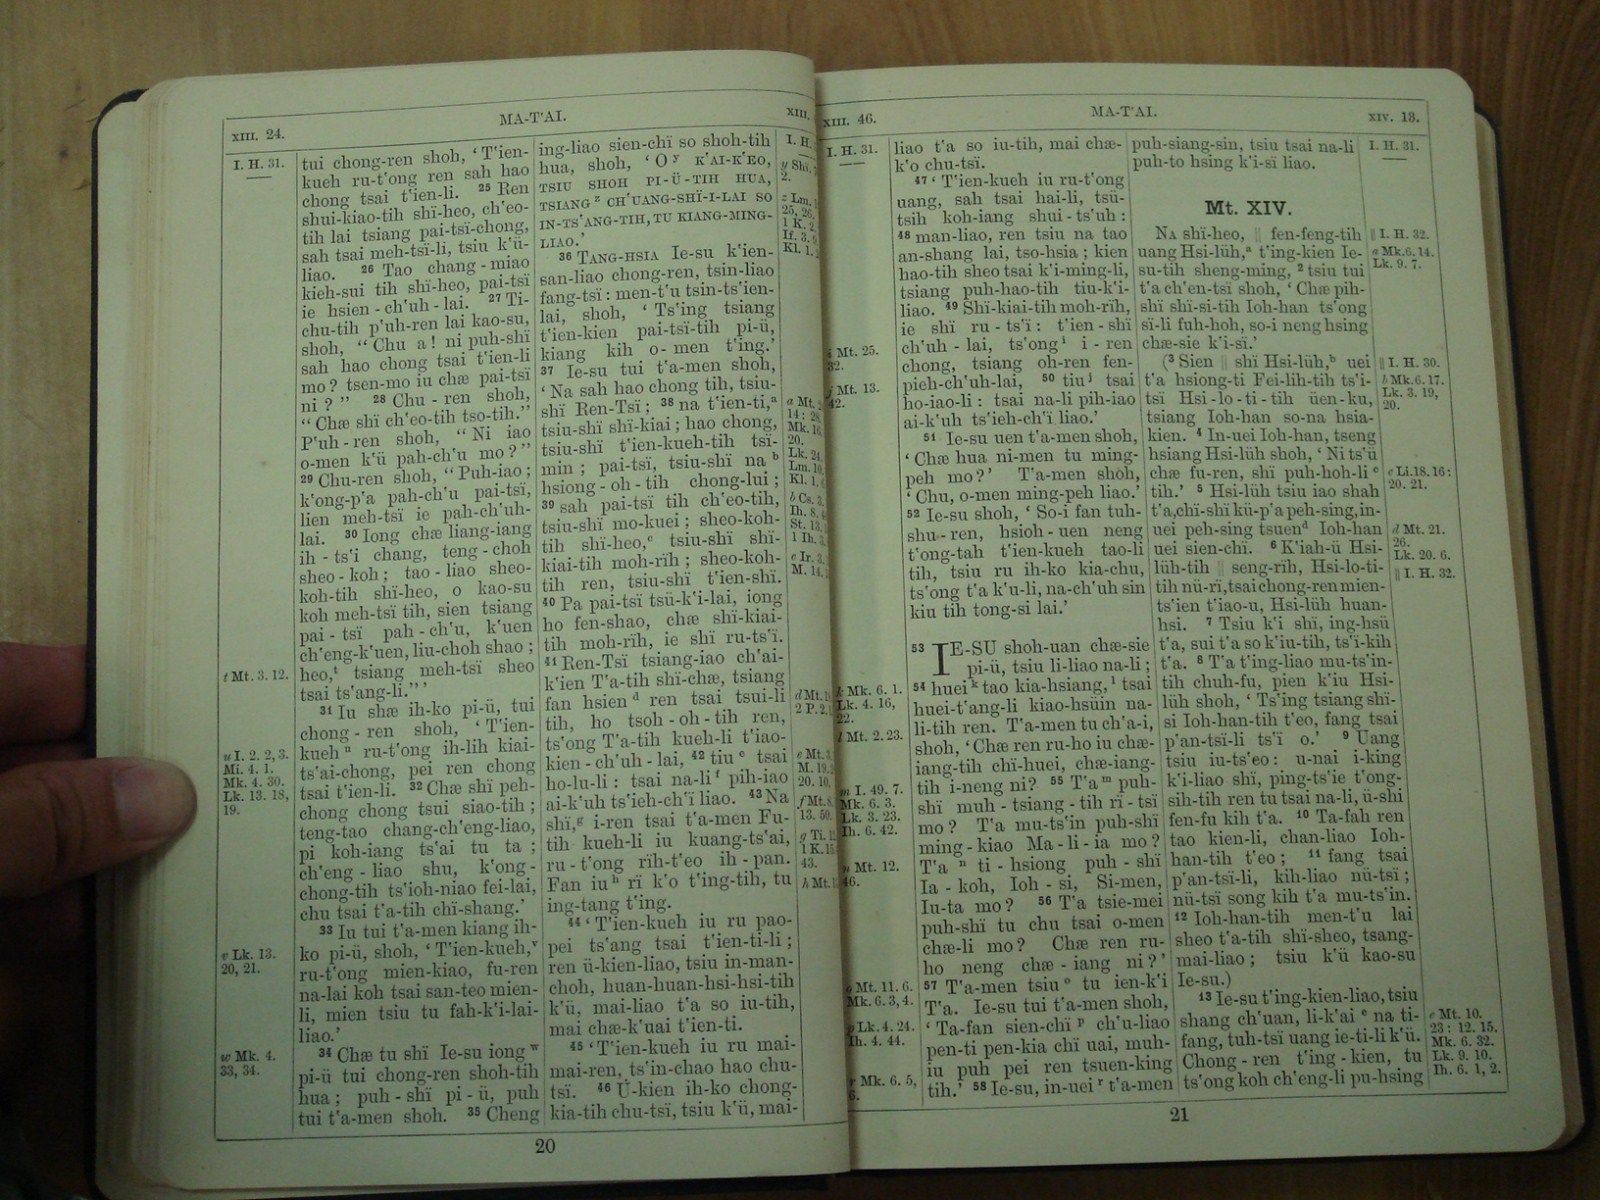 XIII. 24.
MA-T'AI.
XIII.
I. H. 31.
t Mt. 3. 12.
u I. 2. 2, 3.
Mi. 4. 1.
Mk. 4. 30.
Lk. 13. 18,
19.
v Lk. 13.
20, 21.
w Mk. 4.
33, 34.
tui chong-ren shoh, ‘ T'ien-
kueh ru-t'ong ren sah hao
chong tsai t'ien-li. 25 Ren
shui-kiao-tih shï-heo, ch'eo-
tih lai tsiang pai-tsï-chong,
sah tsai meh-tsï-li, tsiu k'ü-
liao. 26 Tao chang-miao
kieh-sui tih shï-heo, pai-tsï
ie hsien-ch'uh-lai. 27 Ti-
chu-tih p'uh-ren lai kao-su,
shoh, “ Chu a! ni puh-shï
sah hao chong tsai t'ien-li
mo? tsen-mo iu chæ pai-tsï
ni ? ” 28 Chu-ren shoh,
“ Chæ shï ch'eo-tih tso-tih.”
P'uh-ren shoh, “ Ni iao
o-men k'ü pah-ch'u mo? ”
29 Chu-ren shoh, “ Puh-iao ;
k'ong-p'a pah-ch'u pai-tsï,
lien meh-tsï ie pah-ch'uh-
lai. 30 Iong chæ liang-iang
ih-ts'i chang, teng-choh
sheo-koh ; tao-liao sheo-
koh-tih shï-heo, o kao-su
koh meh-tsï tih, sien tsiang
pai-tsï pah-ch'u, k'uen
ch'eng-k'uen, liu-choh shao ;
heo,t tsiang meh-tsï sheo
tsai ts'ang-li.” ’
31 Iu shæ ih-ko pi-ü, tui
chong-ren shoh, ‘ T'ien-
kueh u ru-t'ong ih-lih kiai-
ts'ai-chong, pei ren chong
tsai t'ien-li. 32 Chæ shï peh-
chong chong tsui siao-tih ;
teng-tao chang-ch'eng-liao,
pi koh-iang ts'ai tu ta ;
ch'eng-liao shu, k'ong-
chong-tih ts'ioh-niao fei-lai,
chu tsai t'a-tih chï-shang.’
33 Iu tui t'a-men kiang ih-
ko pi-ü, shoh, ‘ T'ien-kueh,v
ru-t'ong mien-kiao, fu-ren
na-lai koh tsai san-teo mien-
li, mien tsiu tu fah-k'i-lai-
liao.’
34 Chæ tu shï Ie-su iong w
pi-ü tui chong-ren shoh-tih
hua ; puh-shï pi-ü, puh
tui t'a-men shoh. 35 Cheng
ing-liao sien-chï so shoh-tih
hua, shoh, ‘ O y K'AI-K'EO,
TSIU SHOH PI-Ü-TIH HUA,
TSIANG z CH'UANG-SHÏ-I-LAI SO
IN-TS'ANG-TIH, TU KIANG-MING-
LIAO.’
36 TANG-HSIA Ie-su k'ien-
san-liao chong-ren, tsin-liao
fang-tsï : men-t'u tsin-ts'ien-
lai, shoh, ‘ Ts'ing tsiang
t'ien-kien pai-tsï-tih pi-ü,
kiang kih o-men t'ing.’
37 Ie-su tui t'a-men shoh,
‘ Na sah hao chong tih, tsiu-
shï Ren-Tsï ; 38 na t'ien-ti,a
tsiu-shï shï-kiai ; hao chong,
tsiu-shï t'ien-kueh-tih tsï-
min ; pai-tsï, tsiu-shï na b
hsiong-oh-tih chong-lui ;
39 sah pai-tsï tih ch'eo-tih,
tsiu-shï mo-kuei ; sheo-koh-
tih shï-heo,c tsiu-shï shï-
kiai-tih moh-rïh ; sheo-koh-
tih ren, tsiu-shï t'ien-shï.
40 Pa pai-tsï tsü-k'i-lai, iong
ho fen-shao, chæ shï-kiai-
tih moh-rïh, ie shï ru-ts'ï.
41 Ren-Tsï tsiang-iao ch'ai-
k'ien T'a-tih shï-chæ, tsiang
fan hsien d ren tsai tsui-li
tih, ho tsoh-oh-tih ren,
ts'ong T'a-tih kueh-li t'iao-
kien-ch'uh-lai, 42 tiu e tsai
ho-lu-li : tsai na-li f pih-iao
ai-k'uh ts'ieh-ch'ï liao. 43 Na
shï,g i-ren tsai t'a-men Fu-
tih kueh-li iu kuang-ts'ai,
ru-t'ong rïh-t'eo ih-pan.
Fan iu h rï k'o t'ing-tih, tu
ing-tang t'ing.
44 ‘ T'ien-kueh iu ru pao-
pei ts'ang tsai t'ien-ti-li ;
ren ü-kien-liao, tsiu in-man-
choh, huan-huan-hsi-hsi-tih
k'ü, mai-liao t'a so iu-tih,
mai chæ-k'uai t'ien-ti.
45 ‘ T'ien-kueh iu ru mai-
mai-ren, ts'in-chao hao chu-
tsï. 46 Ü-kien ih-ko chong-
kia-tih chu-tsï, tsiu k'ü, mai-
I. H.
y Shï.
2.
z Lm.
25, 26.
1 K. 2.
If. 3. 9.
Kl. 1.
a Mt.
14: 28.
Mk. 16.
20.
Lk. 24.
Lm. 10.
Kl. 1.
b Cs. 3.
Ih. 8.
St. 13.
1 Ih. 3.
c Ir. 3.
M. 14.
d Mt.
2 P. 2.
e Mt. 3.
M. 19.
20. 10.
f Mt. 8.
13. 50.
g Ti. 12.
1 K. 15.
43.
h Mt.
20
XIII. 46.
MA-T'AI.
XIV. 13.
I. H. 31.
i Mt. 25.
32.
j Mt. 13.
42.
k Mk. 6. 1.
Lk. 4. 16,
22.
l Mt. 2. 23.
m I. 49. 7.
Mk. 6. 3.
Lk. 3. 23.
Ih. 6. 42.
n Mt. 12.
46.
o Mt. 11. 6.
Mk. 6. 3, 4.
p Lk. 4. 24.
Ih. 4. 44.
r Mk. 6. 5,
6.
liao t'a so iu-tih, mai chæ-
k'o chu-tsï.
47 ‘ T'ien-kueh iu ru-t'ong
uang, sah tsai hai-li, tsü-
tsih koh-iang shui-ts'uh :
48 man-liao, ren tsiu na tao
an-shang lai, tso-hsia ; kien
hao-tih sheo tsai k'i-ming-li,
tsiang puh-hao-tih tiu-k'i-
liao. 49 Shï-kiai-tih moh-rïh,
ie shï ru-ts'ï : t'ien-shï
ch'uh-lai, ts'ong i i-ren
chong, tsiang oh-ren fen-
pieh-ch'uh-lai, 50 tiu j tsai
ho-iao-li : tsai na-li pih-iao
ai-k'uh ts'ieh-ch'ï liao.’
51 Ie-su uen t'a-men shoh,
‘ Chæ hua ni-men tu ming-
peh mo? ’ T'a-men shoh,
‘ Chu, o-men ming-peh liao.’
52 Ie-su shoh, ‘ So-i fan tuh-
shu-ren, hsioh-uen neng
t'ong-tah t'ien-kueh tao-li
tih, tsiu ru ih-ko kia-chu,
ts'ong t'a k'u-li, na-ch'uh sin
kiu tih tong-si lai.’
53 IE-SU shoh-uan chæ-sie
pi-ü, tsiu li-liao na-li ;
54 huei k tao kia-hsiang,l tsai
huei-t'ang-li kiao-hsüin na-
li-tih ren. T'a-men tu ch'a-i,
shoh, ‘ Chæ ren ru-ho iu chæ-
iang-tih chï-huei, chæ-iang-
tih i-neng ni? 55 T'a m puh-
shï muh-tsiang-tih rï-tsï
mo? T'a mu-ts'in puh-shï
ming-kiao Ma-li-ia mo?
T'a n ti-hsiong puh-shï
Ia-koh, Ioh-si, Si-men,
Iu-ta mo? 56 T'a tsie-mei
puh-shï tu chu tsai o-men
chæ-li mo? Chæ ren ru-
ho neng chæ-iang ni? ’
57 T'a-men tsiu o tu ien-k'i
T'a. Ie-su tui t'a-men shoh,
‘ Ta-fan sien-chï p ch'u-liao
pen-ti pen-kia chï uai, muh-
iu puh pei ren tsuen-king
tih.’ 58 Ie-su, in-uei r t'a-men
puh-siang-sin, tsiu tsai na-li
puh-to hsing k'i-sï liao.
Mt. XIV.
NA shï-heo, || fen-feng-tih
uang Hsi-lüh,a t'ing-kien Ie-
su-tih sheng-ming, 2 tsiu tui
t'a ch'en-tsï shoh, ‘ Chæ pih-
shï shï-si-tih Ioh-han ts'ong
sï-li fuh-hoh, so-i neng hsing
chæ-sie k'i-sï.’
(3 Sien || shï Hsi-lüh,b uei
t'a hsiong-ti Fei-lih-tih ts'i-
tsï Hsi-lo-ti-tih üen-ku,
tsiang Ioh-han so-na hsia-
kien. 4 In-uei Ioh-han, tseng
hsiang Hsi-lüh shoh, ‘ Ni ts'ü
chæ fu-ren, shï puh-hoh-li c
tih.’ 5 Hsi-lüh tsiu iao shah
t'a,chï-shï kü-p'a peh-sing,in-
uei peh-sing tsuen d Ioh-han
uei sien-chï. 6 K'iah-ü Hsi-
lüh-tih || seng-rïh, Hsi-lo-ti-
tih nü-rï,tsai chong-ren mien-
ts'ien t'iao-u, Hsi-lüh huan-
hsi. 7 Tsiu k'i shï, ing-hsü
t'a, sui t'a so k'iu-tih, ts'ï-kih
t'a. 8 T'a t'ing-liao mu-ts'in-
tih chuh-fu, pien k'iu Hsi-
lüh shoh, ‘ Ts'ing tsiang shï-
si Ioh-han-tih t'eo, fang tsai
p'an-tsï-li ts'ï o.’ 9 Uang
tsiu iu-ts'eo : u-nai i-king
k'i-liao shï, ping-ts'ie t'ong-
sih-tih ren tu tsai na-li, ü-shi
fen-fu kih t'a. 10 Ta-fah ren
tao kien-li, chan-liao Ioh-
han-tih t'eo ; 11 fang tsai
p'an-tsï-li, kih-liao nü-tsï ;
nü-tsï song kih t'a mu-ts'in.
12 Ioh-han-tih men-t'u lai
sheo t'a-tih shï-sheo, tsang-
mai-liao ; tsiu k'ü kao-su
Ie-su.)
13 Ie-su t'ing-kien-liao, tsiu
shang ch'uan, li-k'ai e na ti-
fang, tuh-tsï uang ie-ti-li k'ü.
Chong-ren t'ing-kien, tu
ts'ong koh ch'eng-li pu-hsing
I. H. 31.
|| I. H. 32.
a Mk. 6. 14.
Lk. 9. 7.
|| I. H. 30.
b Mk. 6. 17.
Lk. 3. 19,
20.
c Li. 18. 16 :
20. 21.
d Mt. 21.
26.
Lk. 20. 6.
|| I. H. 32.
e Mt. 10.
23 : 12. 15.
Mk. 6. 32.
Lk. 9. 10.
Ih. 6. 1, 2.
21